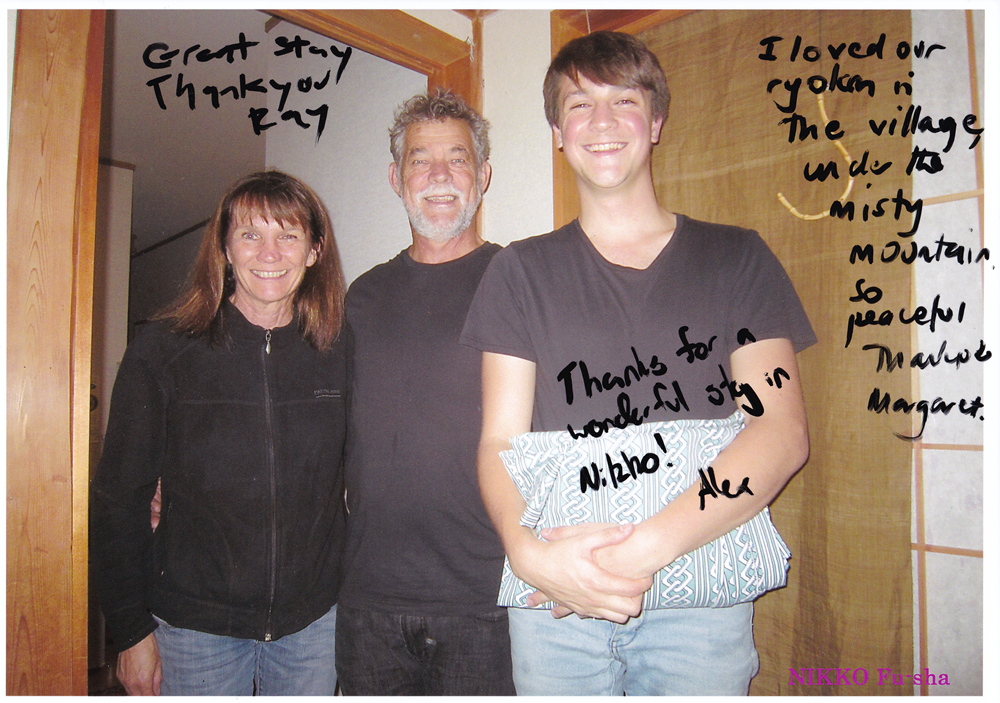 Great stay
Thankyou
Ray
I loved our
ryokan in
the village,
under the
misty
mountain.
so
peaceful
Margaret.
Thanks for a
wonderful stay in
Nikko!
Alex
NIKKO Fu-sha